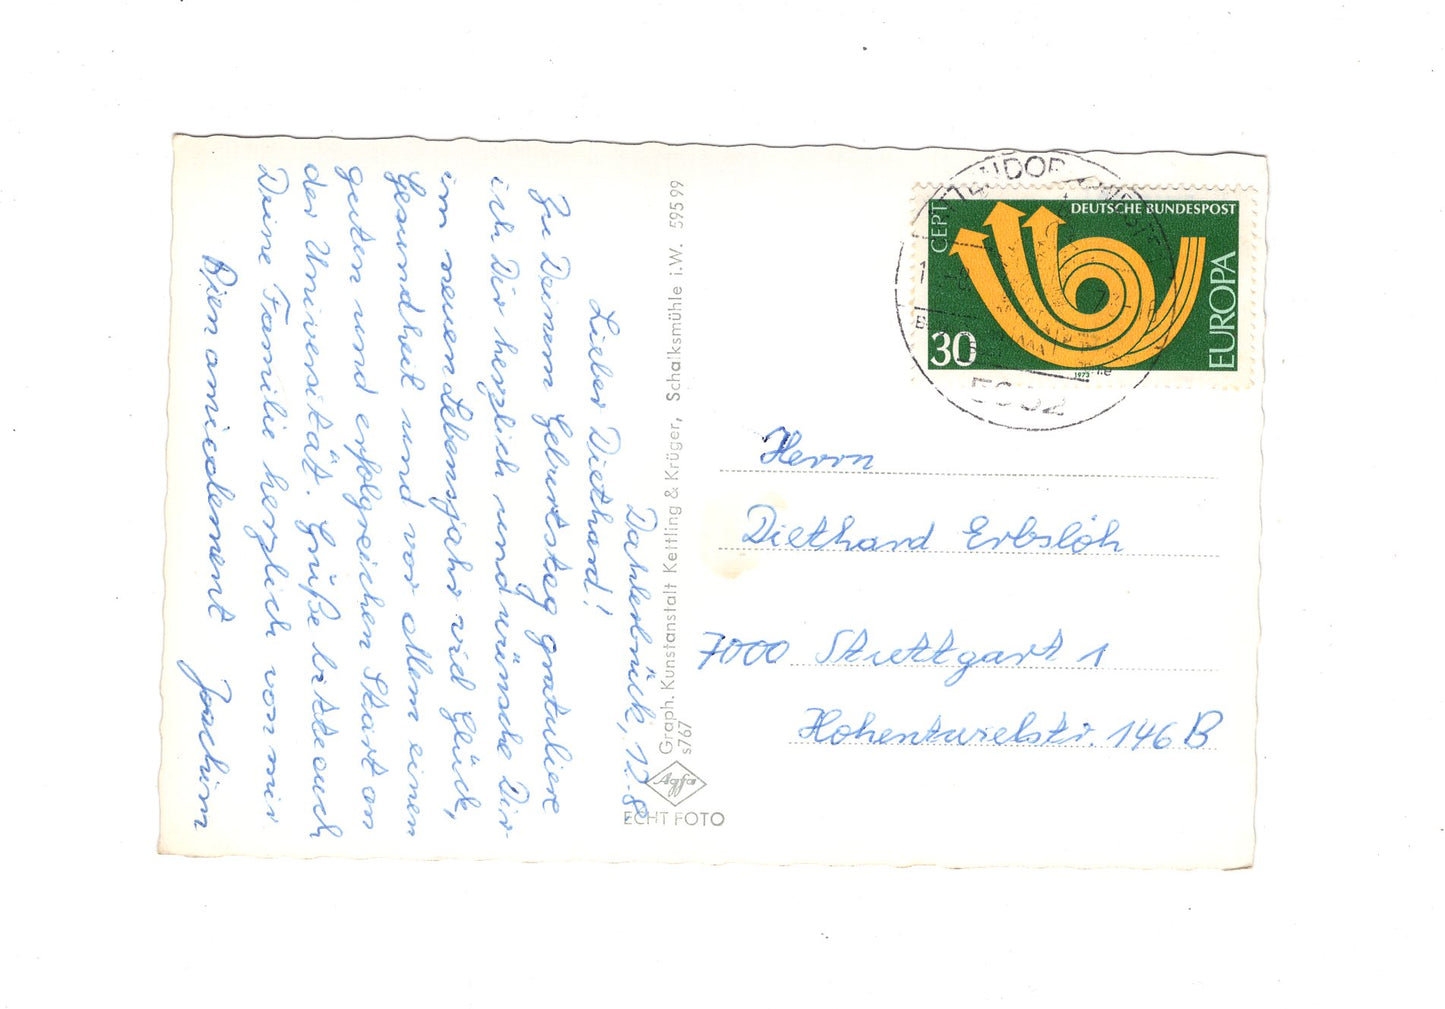 Dahlerbrück, 10.8.
Lieber Diethard!
Zu Deinem Geburtstag gratuliere
ich Dir herzlich und wünsche Dir
im neuen Lebensjahr viel Glück,
Gesundheit und vor allem einen
guten und erfolgreichen Start an
der Universität. Grüße bitte auch
Deine Familie herzlich von mir
Joachim
Graph. Kunstanstalt Kettling & Krüger, Schalksmühle i.W. 595 99
s767
Agfa
ECHT FOTO
CEPT
DEUTSCHE BUNDESPOST
EUROPA
30
1973
Herrn
Diethard Erbslöh
7000 Stuttgart 1
Hohentwielstr. 146 B